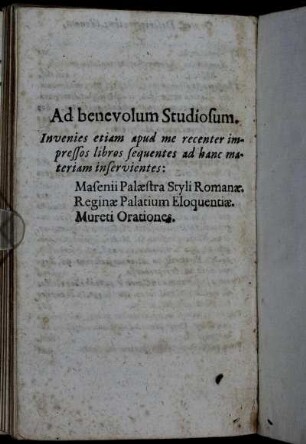 Ad benevolum Studiosum.
Invenies etiam apud me recenter im-
pressos libros sequentes ad hanc ma-
teriam inservientes:
Masenii Palæstra Styli Romanæ.
Reginæ Palatium Eloquentiæ.
Mureti Orationes.